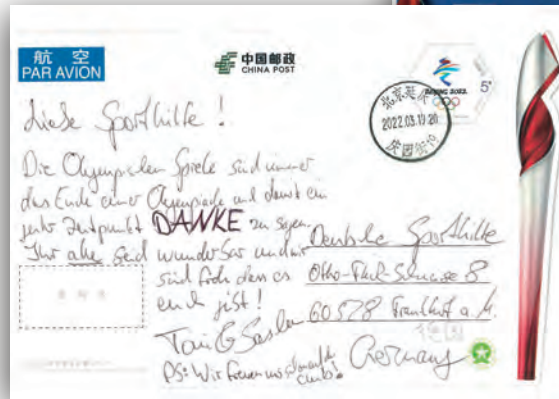 航 空
PAR AVION
中国邮政
CHINA POST
BEIJING 2022
5
2022.03.
Liebe Sporthilfe !
Die Olympischen Spiele sind immer
das Ende einer Olympiade und damit ein
Zeitpunkt DANKE zu sagen.
Ihr alle seid wunderbar und wir
sind froh dass es
euch gibt !
PS: Wir freuen uns
Deutsche Sporthilfe
Otto-Fleck-Schneise 8
60528 Frankfurt a. M.
Germany